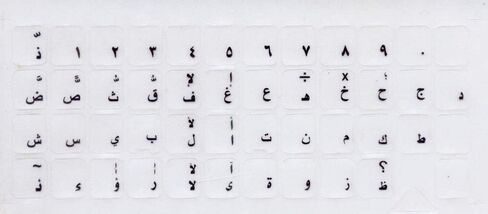 ّ
ذ ١ ٢ ٣ ٤ ٥ ٦ ٧ ٨ ٩ ٠
َ ً ُ ٌ لإ إ ÷ x ؛
ض ص ث ق ف غ ع ه خ ح ج د
لأ أ
ش س ي ب ل ا ت ن م ك ط
~ لآ آ ؟
ء ؤ ر لا ى ة و ز ظ